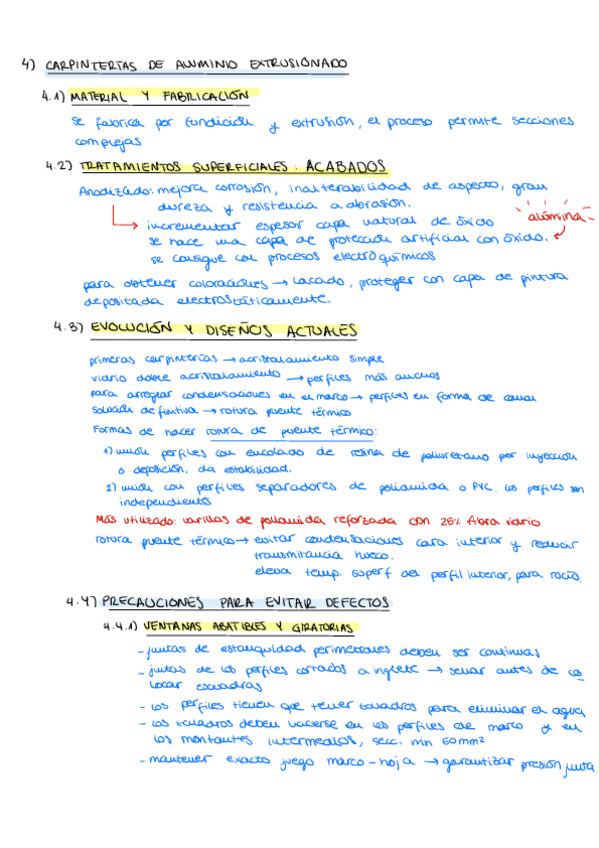 4) CARPINTERTAS DE ALUMINIO EXTRUSIONADO
4.1) MATERIAL Y FABRICACIÓN
se fabrica por fundición y extrusión, el proceso permite secciones
complejas
4.2) TRATAMIENTOS SUPERFICIALES: ACABADOS
Anodizado: mejora corrosión, inalterabilidad de aspecto, gran
dureza y resistencia a abrasión.
alúmina
→ incrementar espesor capa natural de óxido
se hace una capa de protección artificial con óxido.
se consigue con procesos electroquímicos
para obtener coloraciones → lacado, proteger con capa de pintura
depositada electrostáticamente.
4.3) EVOLUCIÓN Y DISEÑOS ACTUALES
primeras carpinterías → acristalamiento simple
vidrio doble acristalamiento → perfiles más anchos
para arreglar condensaciones en el marco → perfiles en forma de canal
solución definitiva → rotura puente térmico
Formas de hacer rotura de puente térmico:
1) unión perfiles con encolado de resina de poliuretano por inyección
o deposición, da estabilidad.
2) unión con perfiles separadores de poliamida o PVC, los perfiles son
independientes
Más utilizado: varillas de poliamida reforzada con 25% fibra vidrio
rotura puente térmico → evitar condensaciones cara interior y reducir
transmitancia hueco.
eleva temp. superf del perfil interior, para rocío.
4.4) PRECAUCIONES PARA EVITAR DEFECTOS
4.4.1) VENTANAS ABATIBLES Y GIRATORIAS
- juntas de estanquidad perimetrales deben ser continuas
- juntas de los perfiles cortados a inglete → sellar antes de co
locar escuadras
- los perfiles tienen que tener taladros para eliminar el agua
- los taladros deben hacerse en los perfiles de marco y en
los montantes intermedios, secc. min 50mm²
- mantener exacto juego marco - hoja → garantizar presión junta